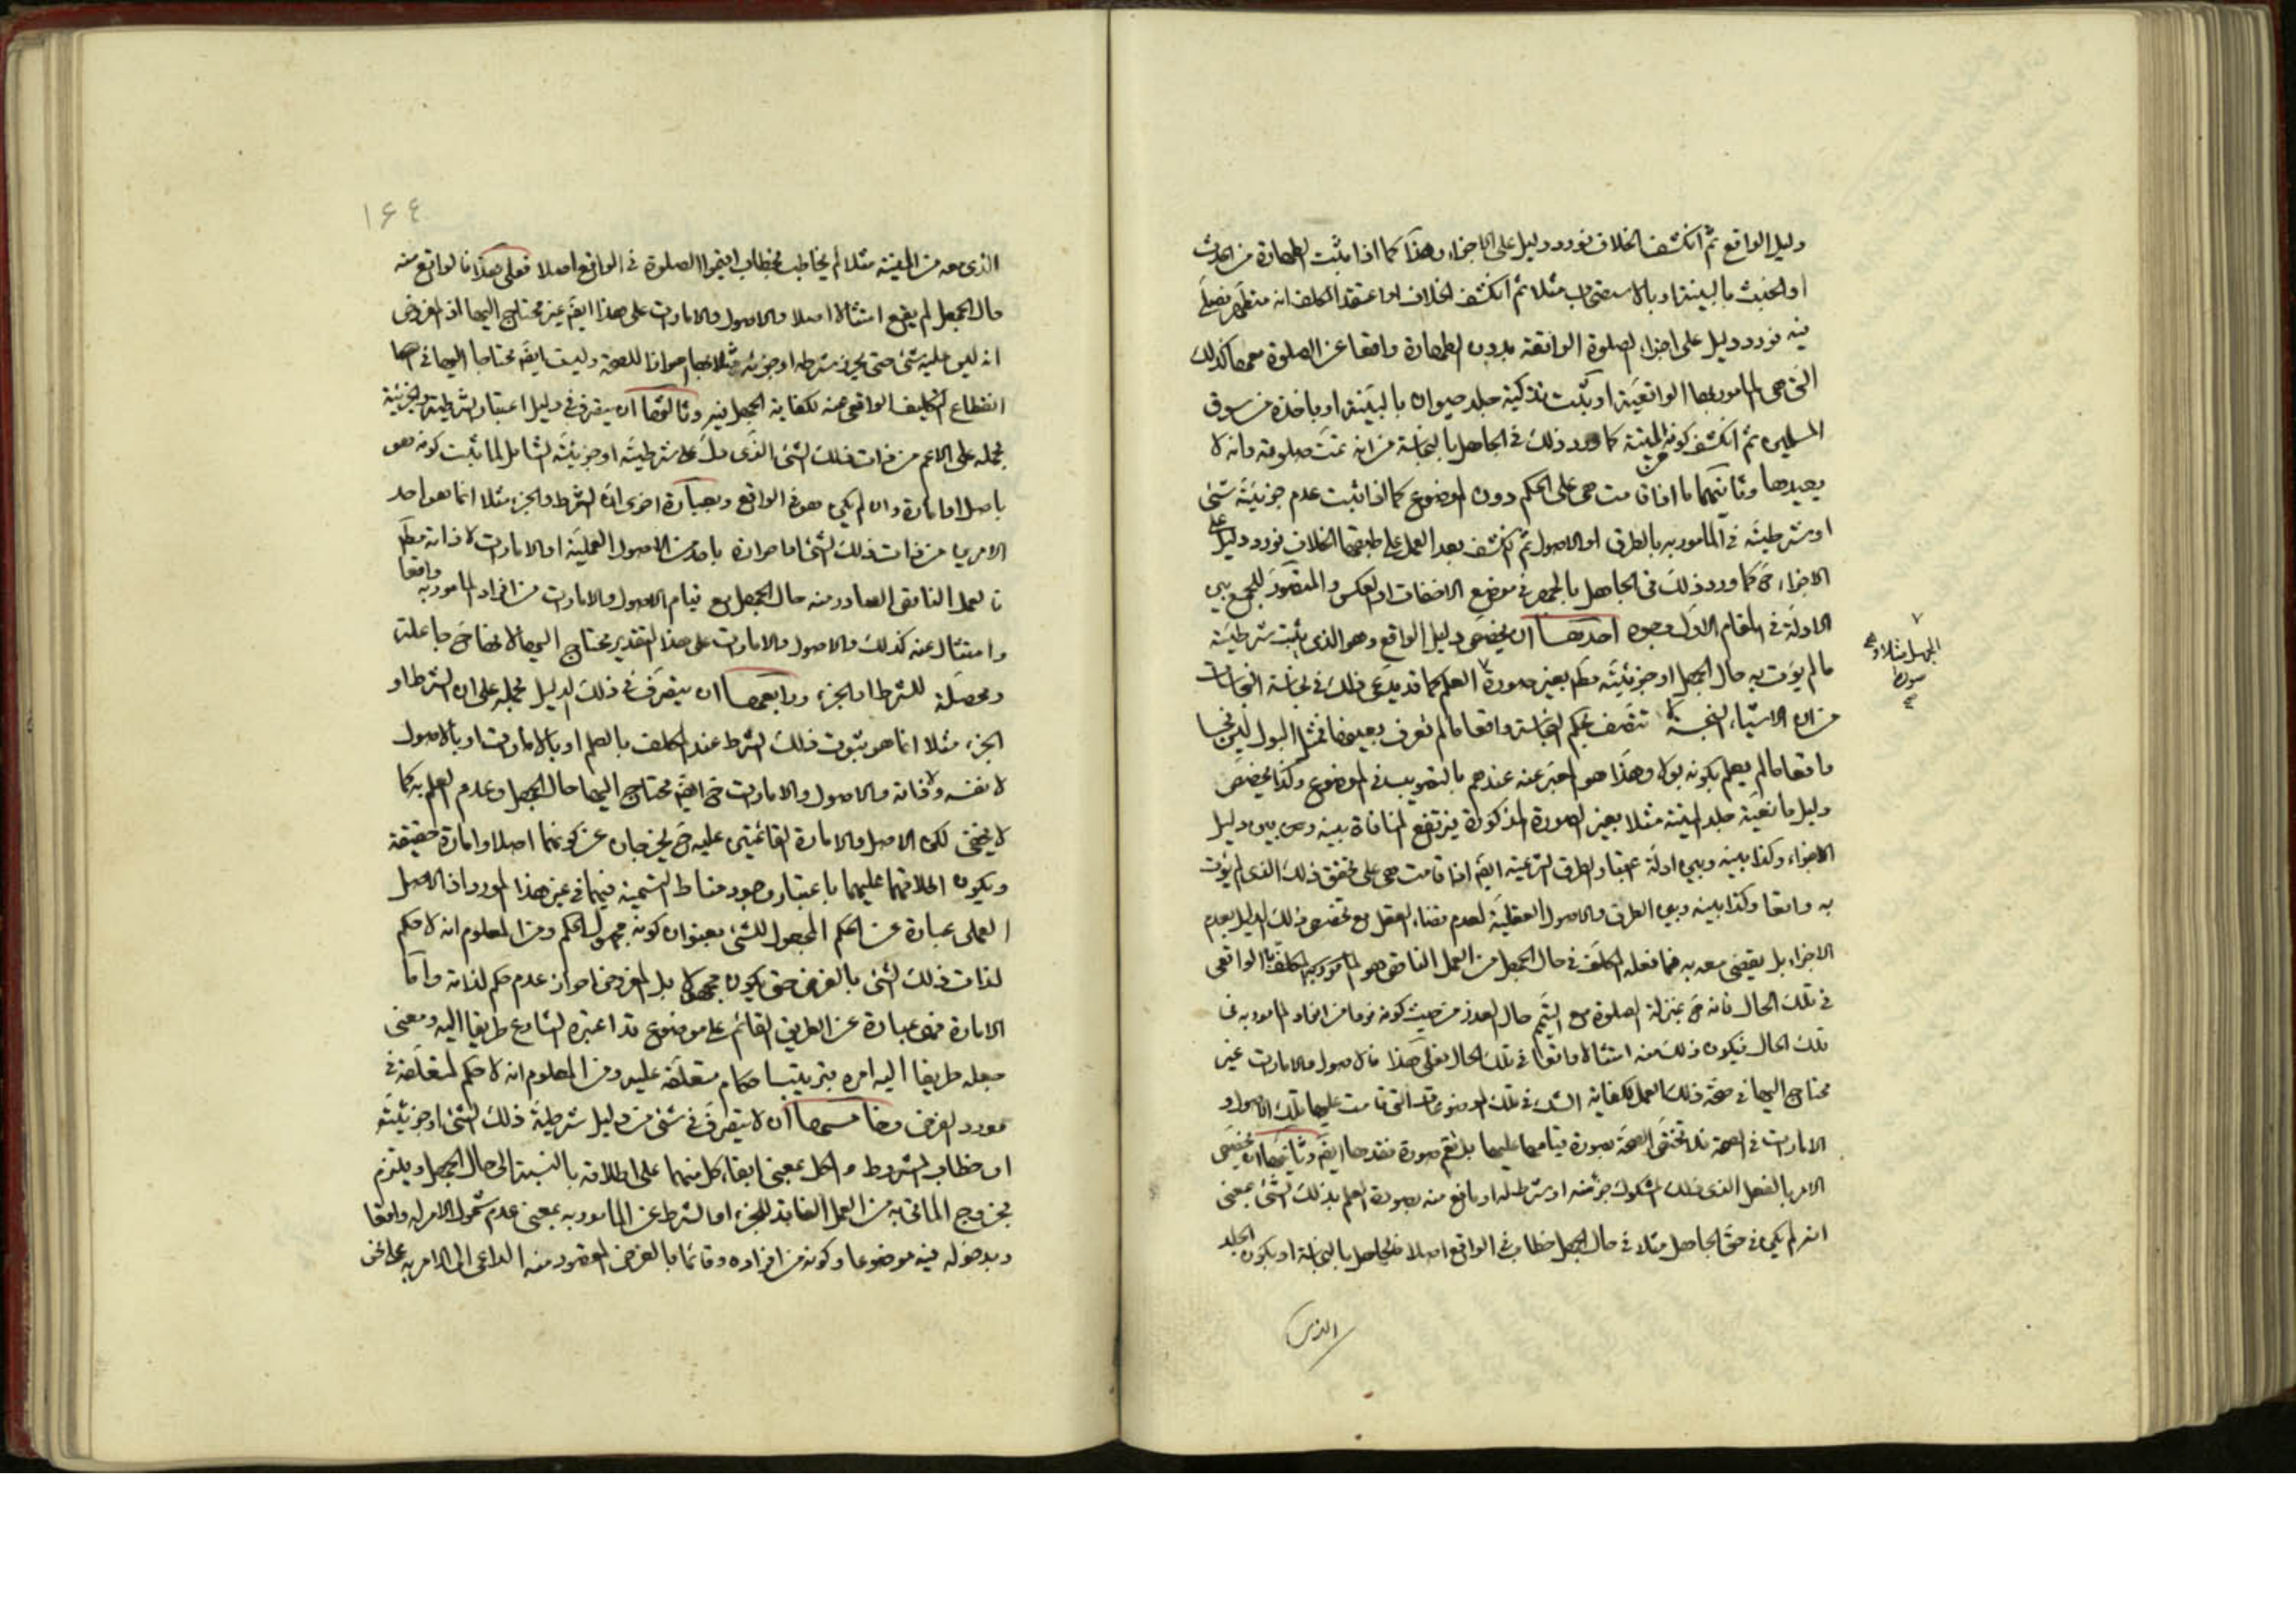 دليل الواقع ثم انكشف الخلاف فورد دليل على الاجزاء وهذا كما اذا ثبت الطهارة من الحدث
او الخبث بالبينة او بالاستصحاب مثلا ثم انكشف الخلاف او اعتقد المكلف انه متطهر فصلى
فيه فورد دليل على اجزاء الصلوة الواقعة بدون الطهارة واقعا عن الصلوة معها كذلك
التى هى المأمور بها الواقعية او ثبت تذكية جلد حيوان بالبينة او باخذه من سوق
المسلمين ثم انكشف كونه الميتة كما ورد ذلك فى الجاهل بالنجاسة من انه تمت صلوته وانه لا
يعيدها وثانيهما ما اذا قامت هى على الحكم دون الموضوع كما اذا ثبت عدم جزئية شئ
او شرطيته فى المأمور به بالطرق او الاصول ثم انكشف بعد العمل على طبقهما الخلاف فورد دليل على
الاجزاء ح كما ورد ذلك فى الجاهل بالجهر فى موضع الاخفات او العكس والمتصور للجمع بين
الادلة فى المقام الاول وجوه احدها ان يخصص دليل الواقع وهو الذى يثبت شرطية
ما لم يؤت به حال الجهل او جزئيته مطم بغير صورة العلم كما قد يدعى ذلك فى نجاسة النجاسات
من ان الاشياء النجسة لا تتصف بحكم النجاسة واقعا ما لم تعرف بعينها فمثل البول ليس نجسا
واقعا ما لم يعلم بكونه بولا وهذا هو المعبر عنه عندهم بالتصويب فى الموضوع وكذا يخصص
دليل مانعية جلد الميتة مثلا بغير الصورة المذكورة فيرتفع المنافاة بينه وبين دليل
الاجزاء وكذا بينه وبين ادلة اعتبار الطرق الشرعية ايضا اذا قامت هى على تحقق ذلك الذى لم يؤت
به واقعا وكذا بينه وبين الطرق والاصول العقلية لعدم قضاء العقل مع تخصص ذلك الدليل بعدم
الاجزاء بل يقضى معه به فما فعله المكلف فى حال الجهل من العمل الناقص هو المأمور به الواقعى
فى تلك الحال فانه ح بمنزلة الصلوة مع التيمم حال العذر من حيث كونه فردا من افراد المأمور به فى
تلك الحال فيكون ذلك منه امتثالا واقعا فى تلك الحال فعلى هذا فالاصول والامارات غير
محتاج اليها فى صحة ذلك العمل لكفاية الشك فى تلك الموضوعات التى قامت عليها تلك الاصول و
الامارات فى الصحة فلا تختص الصحة بصورة قيامها عليها بل تعم صورة فقدها ايضا وثانيها ان يخصص
الامر بالفعل الذى ذلك المشكوك جزئه او شرط له او مانع منه بصورة العلم بذلك الشئ بمعنى
انه لم يكن فى حق الجاهل مثلا فى حال الجهل خطاب فى الواقع اصلا فالجاهل بالنجاسة او بكون الجلد
الجهل مثلا
صورة
صح
الذى
١۶۴
الذى معه من الميتة مثلا لم يخاطب بخطاب اقيموا الصلوة فى الواقع اصلا فعلى هذا فالواقع منه
حال الجهل لم يقع امتثالا اصلا والاصول والامارات على هذا ايضا غير محتاج اليها اذ المفروض
انه ليس عليه شئ حتى يحرز شرطه او جزئه مثلا بها احرازا للصحة وليست ايضا محتاجا اليها فى
انقطاع التكليف الواقعى عنه لكفاية الجهل فيه وثالثها ان يتصرف فى دليل اعتبار الشرطية والجزئية
بحمله على الاعم من ذات ذلك الشئ الذى دل على شرطيته او جزئيته الشامل لما ثبت كونه هو
باصل او امارة وان لم يكن هو فى الواقع وبعبارة اخرى ان الشرط والجزء مثلا انما هو احد
الامرين من ذات ذلك الشئ او احرازه باحد من الاصول العملية او الامارات لا ذاته مطم
فالعمل الناقص الصادر منه حال الجهل مع قيام الاصول والامارات من افراد المأمور به واقعا
وامتثال عنه كذلك والاصول والامارات على هذا التقدير محتاج اليها لانها ح جاعلة
ومحصلة للشرط او الجزء ورابعها ان يتصرف فى ذلك الدليل بحمله على ان الشرط او
الجزء مثلا انما هو ثبوت ذلك الشرط عند المكلف بالعلم او بالامارات او بالاصول
لا نفسه ولا ذاته والاصول والامارات ح ايضا محتاج اليها حال الجهل وعدم العلم به كما
لا يخفى لكن الاصل والامارة القائمتين عليه ح يخرجان عن كونهما اصلا وامارة حقيقة
ويكون اطلاقهما عليهما باعتبار وجود مناط التسمية فيهما فى غير هذا المورد اذ الاصل
العملى عبارة عن الحكم المجعول للشئ بعنوان كونه مجهول الحكم ومن المعلوم انه لا حكم
لذات ذلك الشئ بالفرض حتى يكون مجهولا بل المفروض احراز عدم حكم لذاته واما
الامارة فهى عبارة عن الطريق القائم على موضوع قد اعتبره الشارع طريقا اليه ومعنى
جعله طريقا اليه امره بترتيب احكام متعلقة عليه ومن المعلوم انه لا حكم لمتعلقه فى
مورد الفرض وخامسها ان لا يتصرف فى شئ من دليل شرطية ذلك الشئ او جزئيته
او خطاب المشروط والكل بمعنى ابقاء كل منهما على اطلاقه بالنسبة الى حال الجهل ويلتزم
بخروج المأتى به من العمل الفاقد للجزء او الشرط عن المأمور به بمعنى عدم شمول الامر له واقعا
وبدخوله فيه موضوعا وكونه من افراده وقائما بالغرض المقصود منه الداعى الى الامر به على نحو